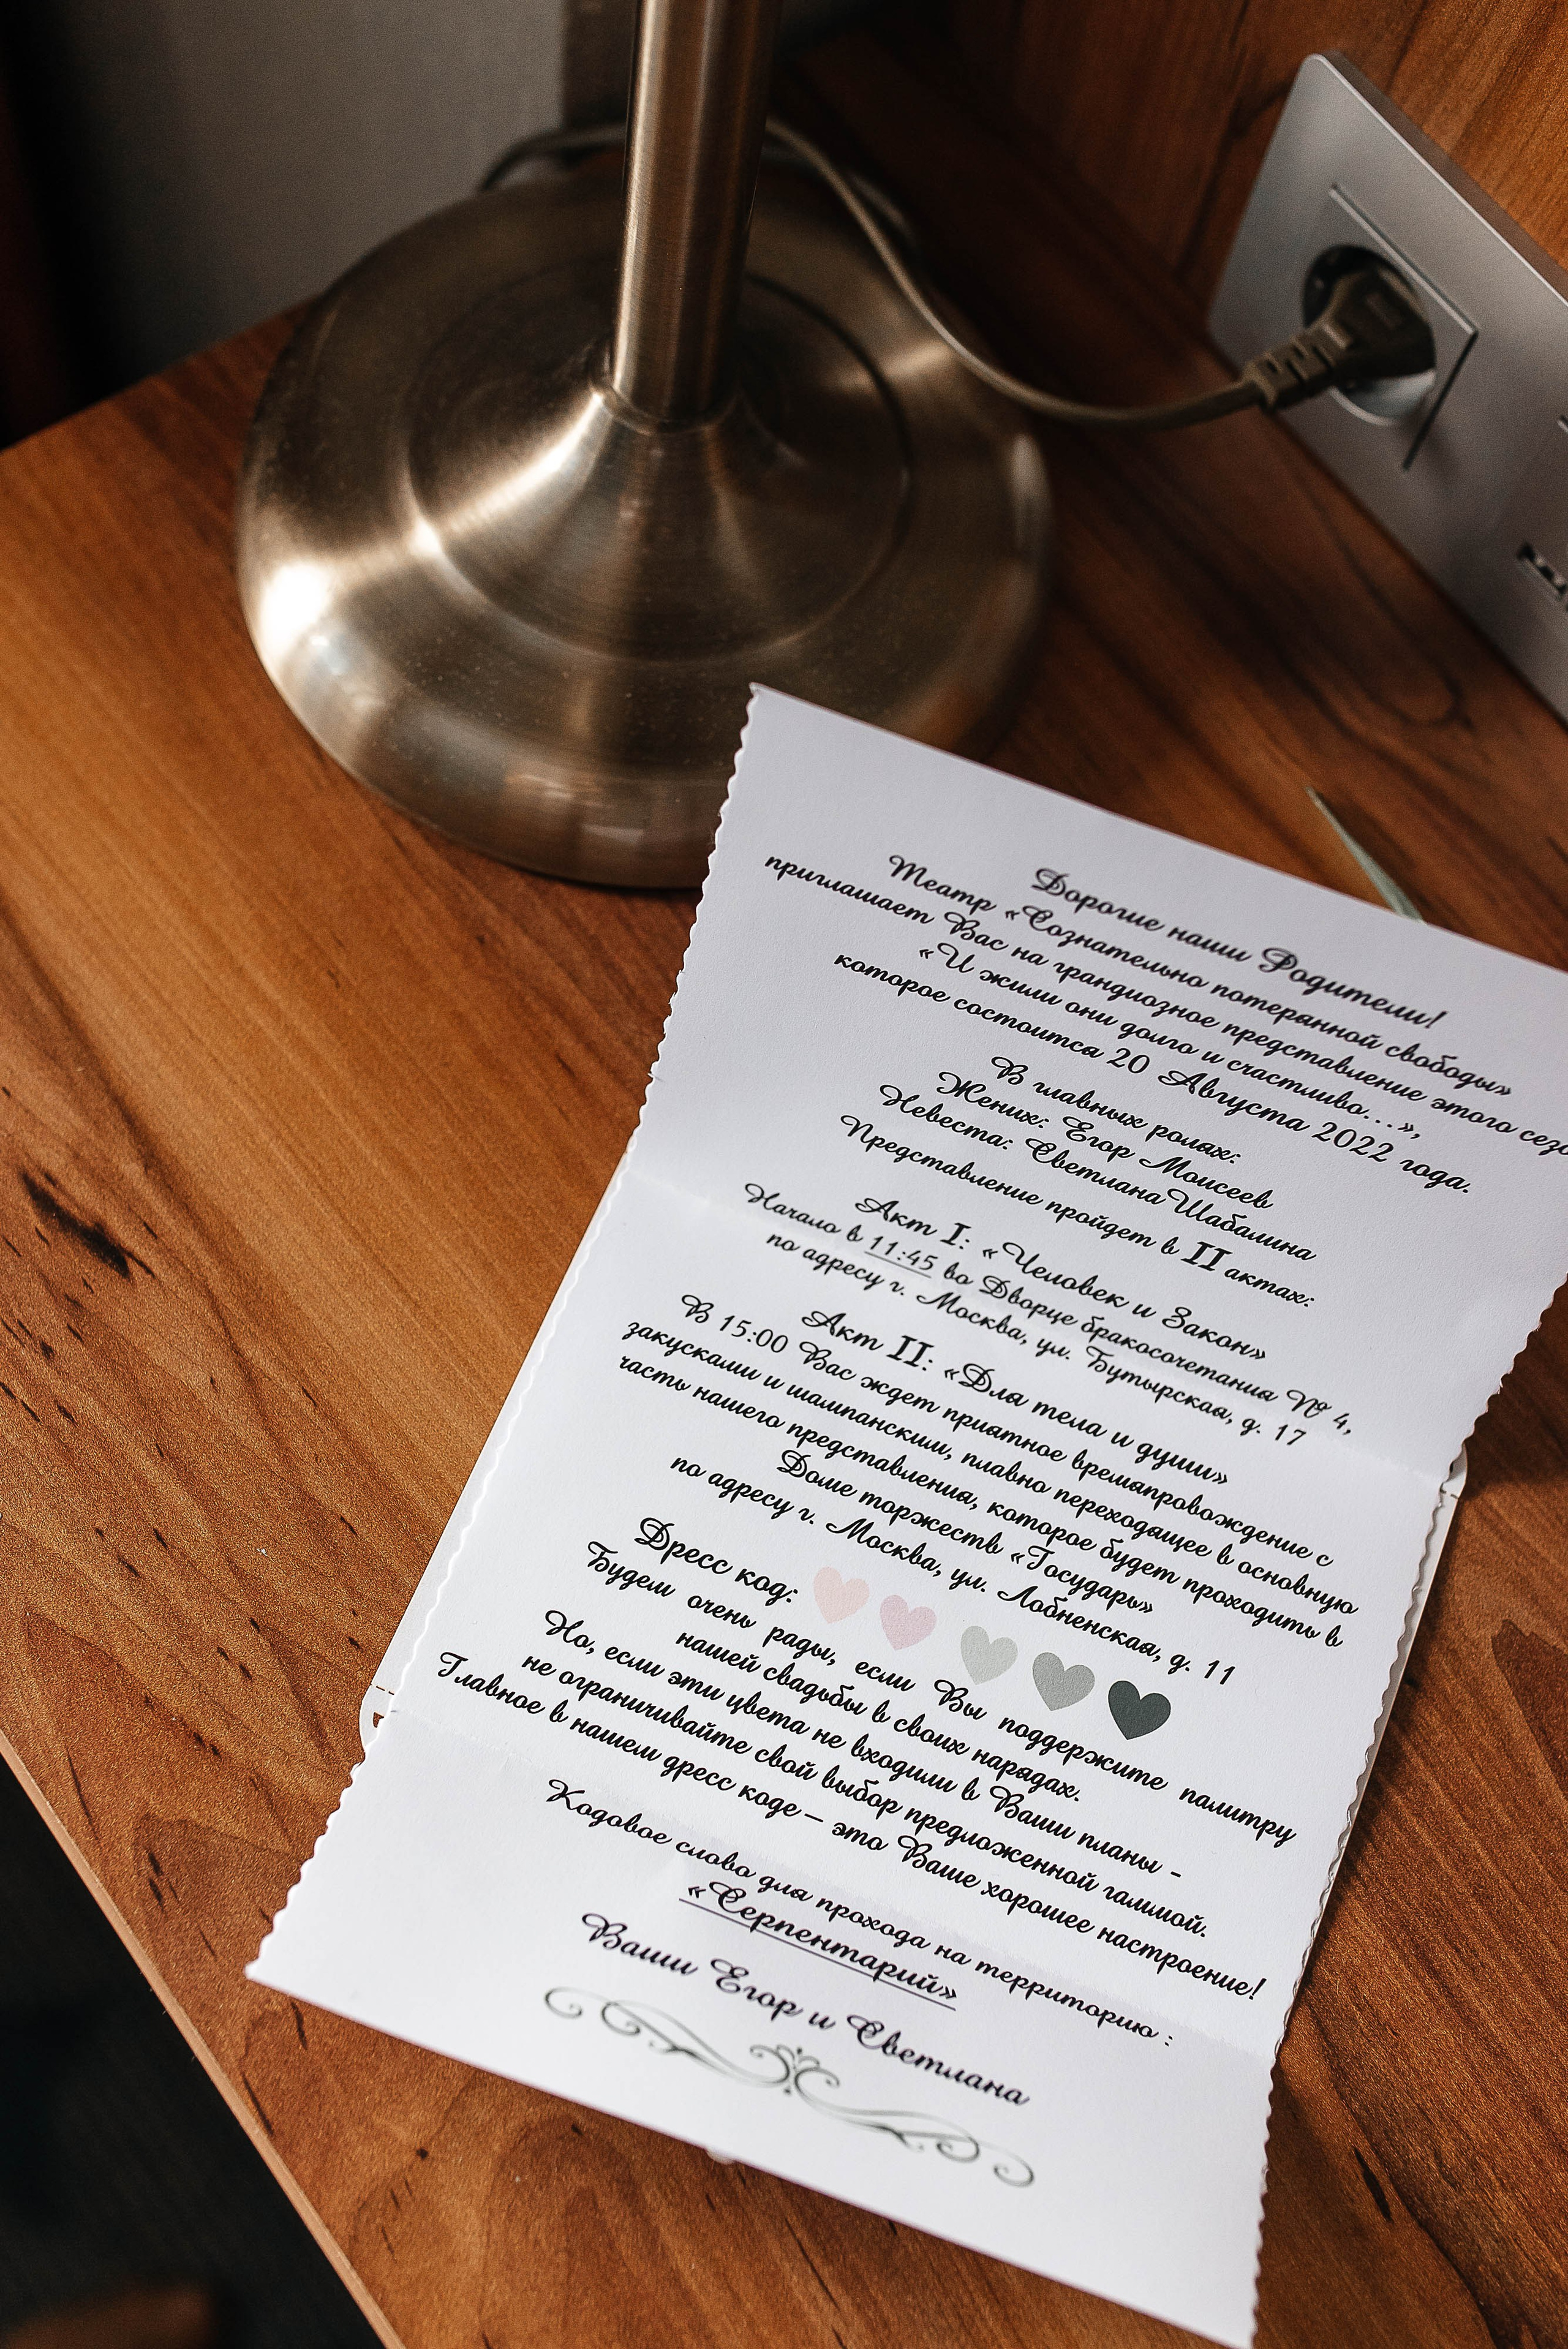 Дорогие наши Родители!
Театр «Сознательно потерянной свободы»
приглашает Вас на грандиозное представление этого
«И жили они долго и счастливо...»,
которое состоится 20 Августа 2022 года.
В главных ролях:
Жених: Егор Моисеев
Невеста: Светлана Шабалина
Представление пройдет в II актах:
Акт I: «Человек и Закон»
Начало в 11:45 во Дворце бракосочетания № 4,
по адресу г. Москва, ул. Бутырская, д. 17
Акт II: «Для тела и души»
В 15:00 Вас ждет приятное времяпровождение с
закусками и шампанским, плавно переходящее в основную
часть нашего представления, которое будет проходить в
Доме торжеств «Государь»
по адресу г. Москва, ул. Лобненская, д. 11
Дресс код:
Будем очень рады, если Вы поддержите палитру
нашей свадьбы в своих нарядах.
Но, если эти цвета не входили в Ваши планы -
не ограничивайте свой выбор предложенной гаммой.
Главное в нашем дресс коде – это Ваше хорошее настроение!
Кодовое слово для прохода на территорию :
«Серпентарий»
Ваши Егор и Светлана